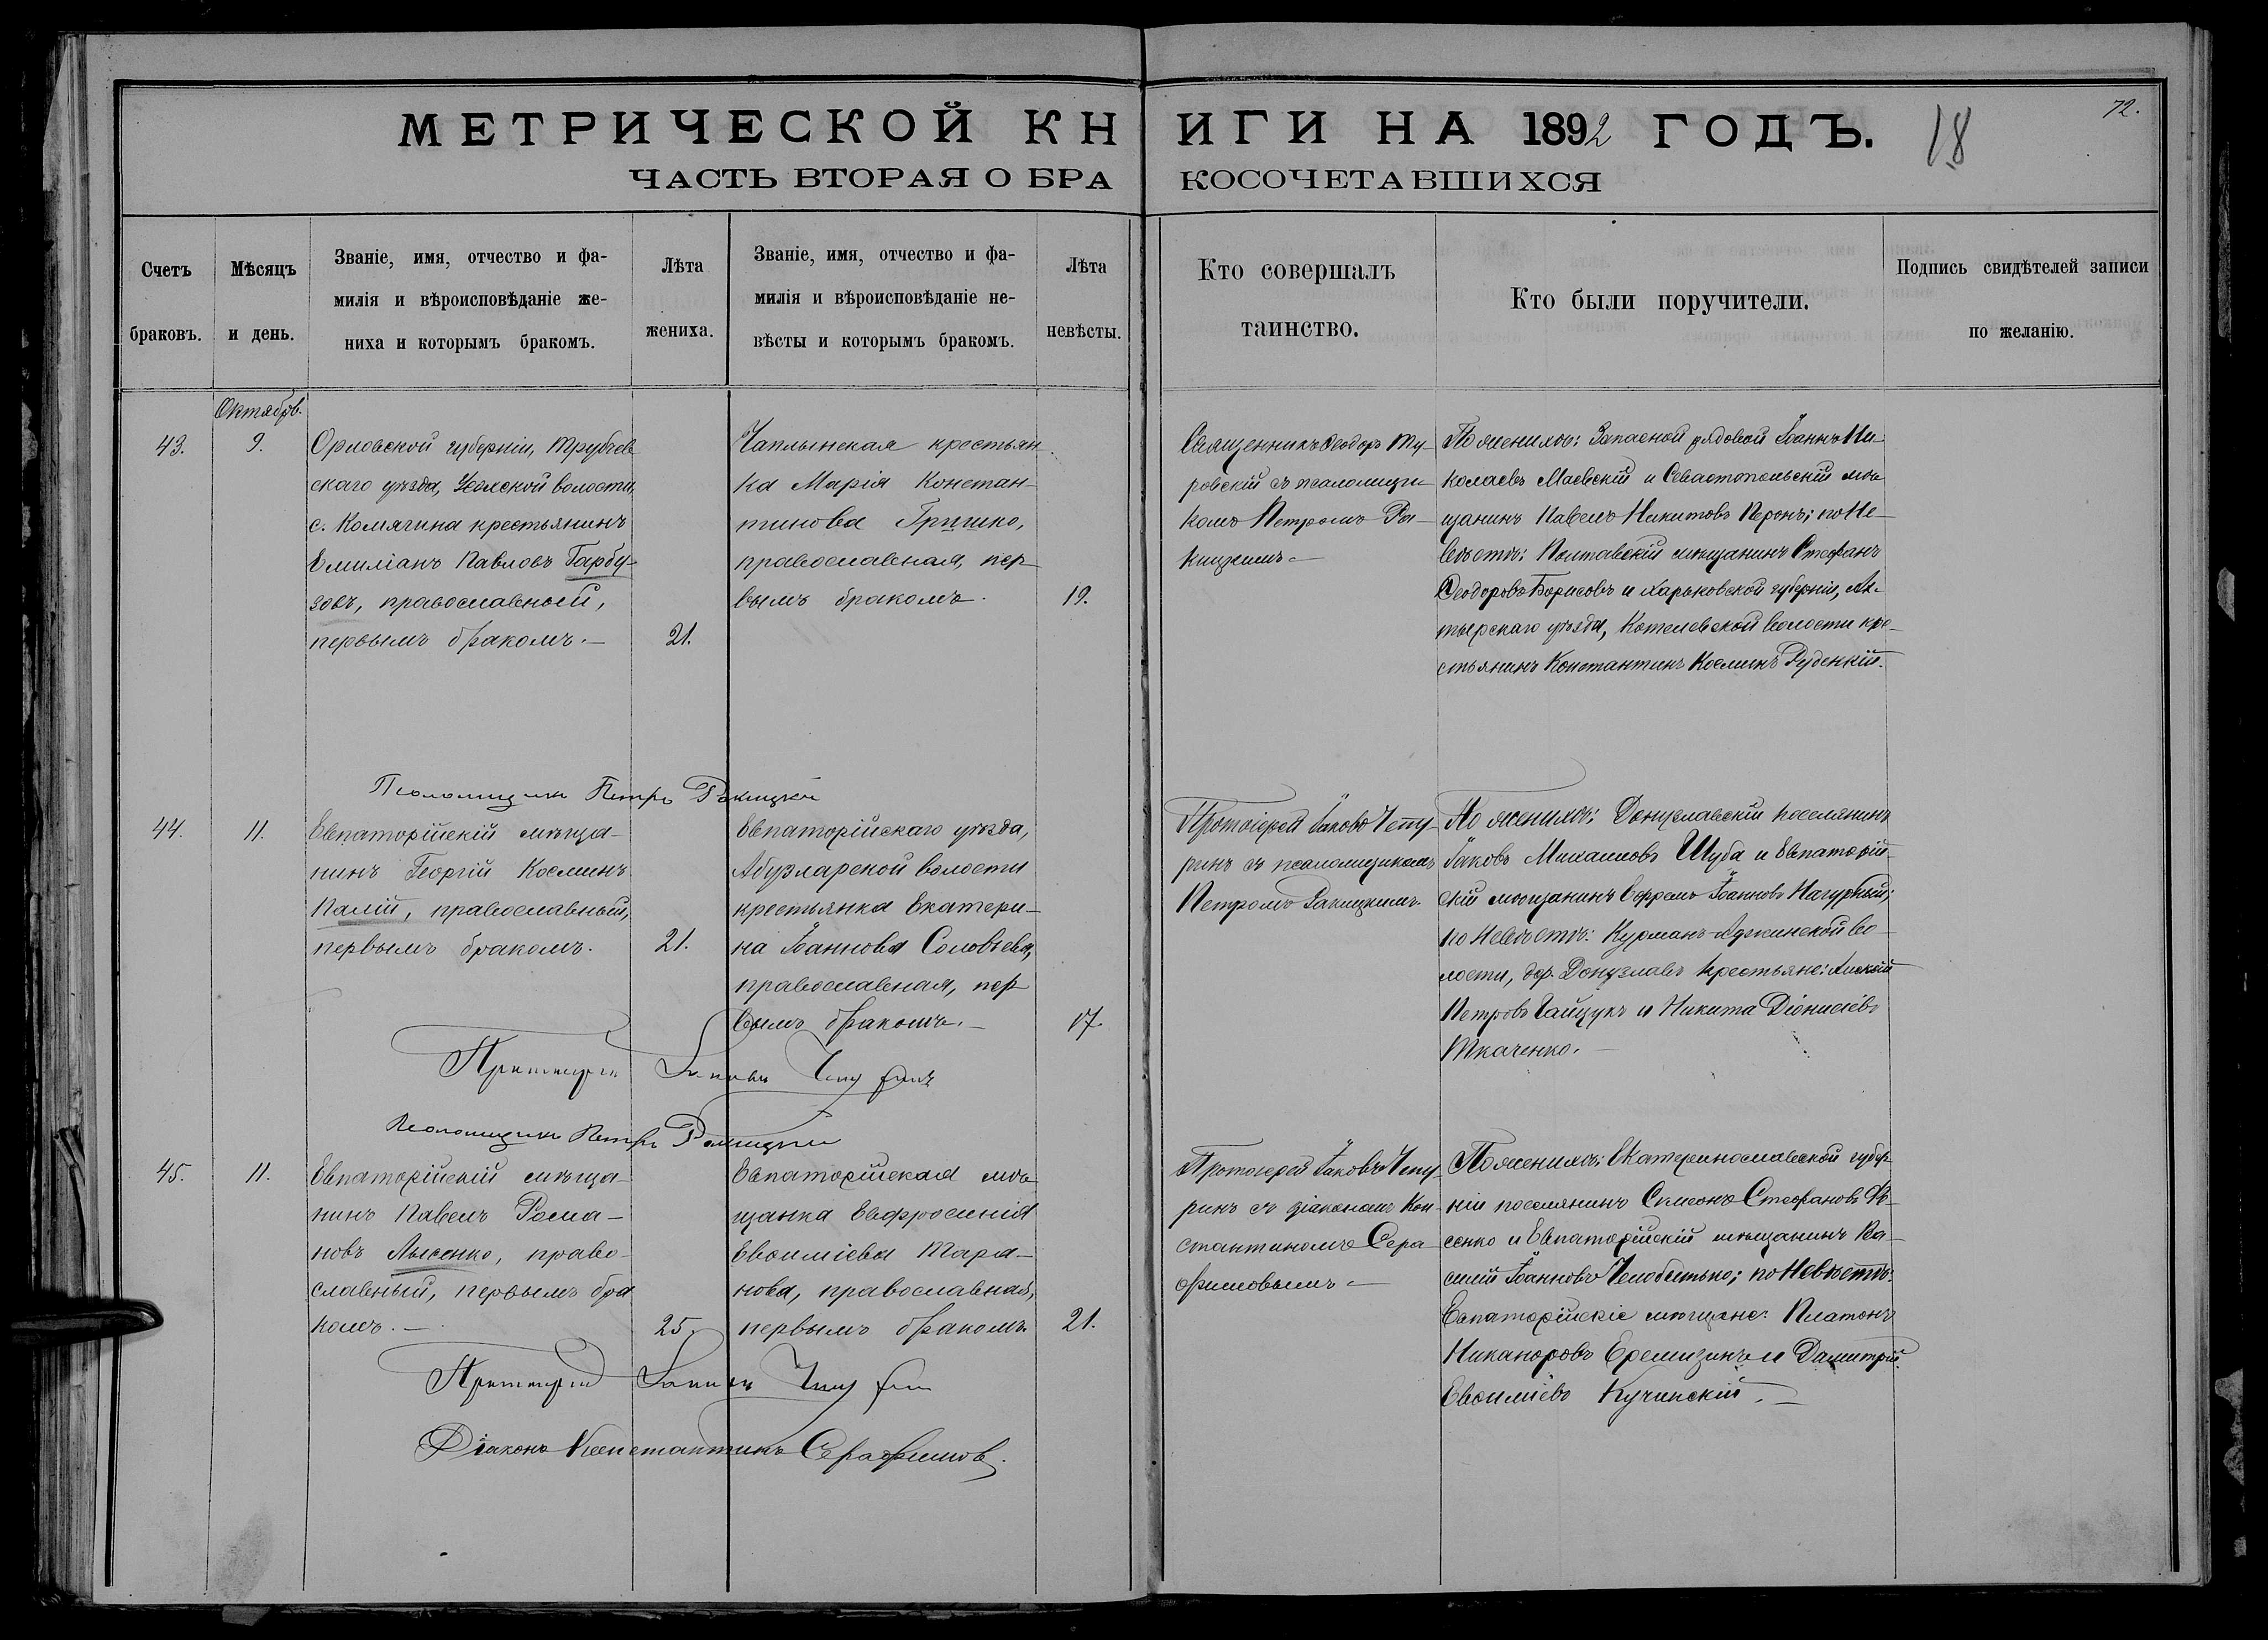 МЕТРИЧЕСКОЙ КНИГИ НА 1892 ГОДЪ.
18
72.
ЧАСТЬ ВТОРАЯ О БРАКОСОЧЕТАВШИХСЯ
Счетъ браковъ.
Мѣсяцъ и день.
Званіе, имя, отчество и фа-
милія и вѣроисповѣданіе же-
ниха и которымъ бракомъ.
Лѣта жениха.
Званіе, имя, отчество и фа-
милія и вѣроисповѣданіе не-
вѣсты и которымъ бракомъ.
Лѣта невѣсты.
Кто совершалъ
таинство.
Кто были поручители.
Подпись свидѣтелей записи
по желанію.
Октябрь.
43.
9.
Орловской губерніи, Трубчев
скаго уѣзда, волости,
с. Комягина крестьянинъ
Емиліанъ Павловъ Гарбу-
зовъ, православный,
первымъ бракомъ.—
21.
Чаплынская крестьян-
ка Марія Констан-
тинова Гришко,
православная, пер-
вымъ бракомъ.
19.
Священникъ Ѳеодоръ Ту-
ровскій съ псаломщи-
комъ Петромъ Ра-
кицкимъ.—
По женихѣ: Запасной рядовой Іоаннъ Ни-
колаевъ Маевскій и Севастопольскій мѣ-
щанинъ Павелъ Никитовъ Перонъ; по Не-
вѣстѣ: Полтавскій мѣщанинъ Стефанъ
Ѳеодоровъ Борисовъ и Харьковской губерніи, Ах-
тырскаго уѣзда, Котелевской волости кре-
стьянинъ Константинъ Косминъ Руденкій.
Псаломщикъ Петръ Ракицкій
44.
11.
Евпаторійскій мѣща-
нинъ Георгій Косминъ
Палій, православный,
первымъ бракомъ.
21.
Евпаторійскаго уѣзда,
Абузларской волости
крестьянка Екатери-
на Іоаннова Соловьева,
православная, пер-
вымъ бракомъ.—
17.
Протоіерей Іаковъ Чепу-
ринъ съ псаломщикомъ
Петромъ Ракицкимъ.
По женихѣ: Донузлавскій поселянинъ
Іаковъ Михаиловъ Шуба и Евпаторій-
скій мѣщанинъ Ефремъ Іоанновъ Нагурный;
по Невѣстѣ: Курманъ-Аджинской во-
лости, дер. Донузлавъ крестьяне: Алексій
Петровъ Гайдукъ и Никита Діонисіевъ
Ткаченко.—
Протоіерей Іаковъ Чепуринъ
Псаломщикъ Петръ Ракицкій
45.
11.
Евпаторійскій мѣща-
нинъ Павелъ Рома-
новъ Лысенко, право-
славный, первымъ бра
комъ.—
25.
Евпаторійская мѣ-
щанка Евфросинія
Евѳиміева Тара-
нова, православная,
первымъ бракомъ.
21.
Протоіерей Іаковъ Чепу-
ринъ съ діакономъ Кон-
стантиномъ Сера-
фимовымъ.—
По женихѣ: Екатеринославской губер-
ніи поселянинъ Симеонъ Стефановъ
сенко и Евпаторійскій мѣщанинъ Ва-
силій Іоанновъ Челобитько; по Невѣстѣ:
Евпаторійскіе мѣщане: Платонъ
Никаноровъ и Димитрій
Евѳиміевъ Кучинскій.—
Протоіерей Іаковъ Чепуринъ
Діаконъ Константинъ Серафимовъ.